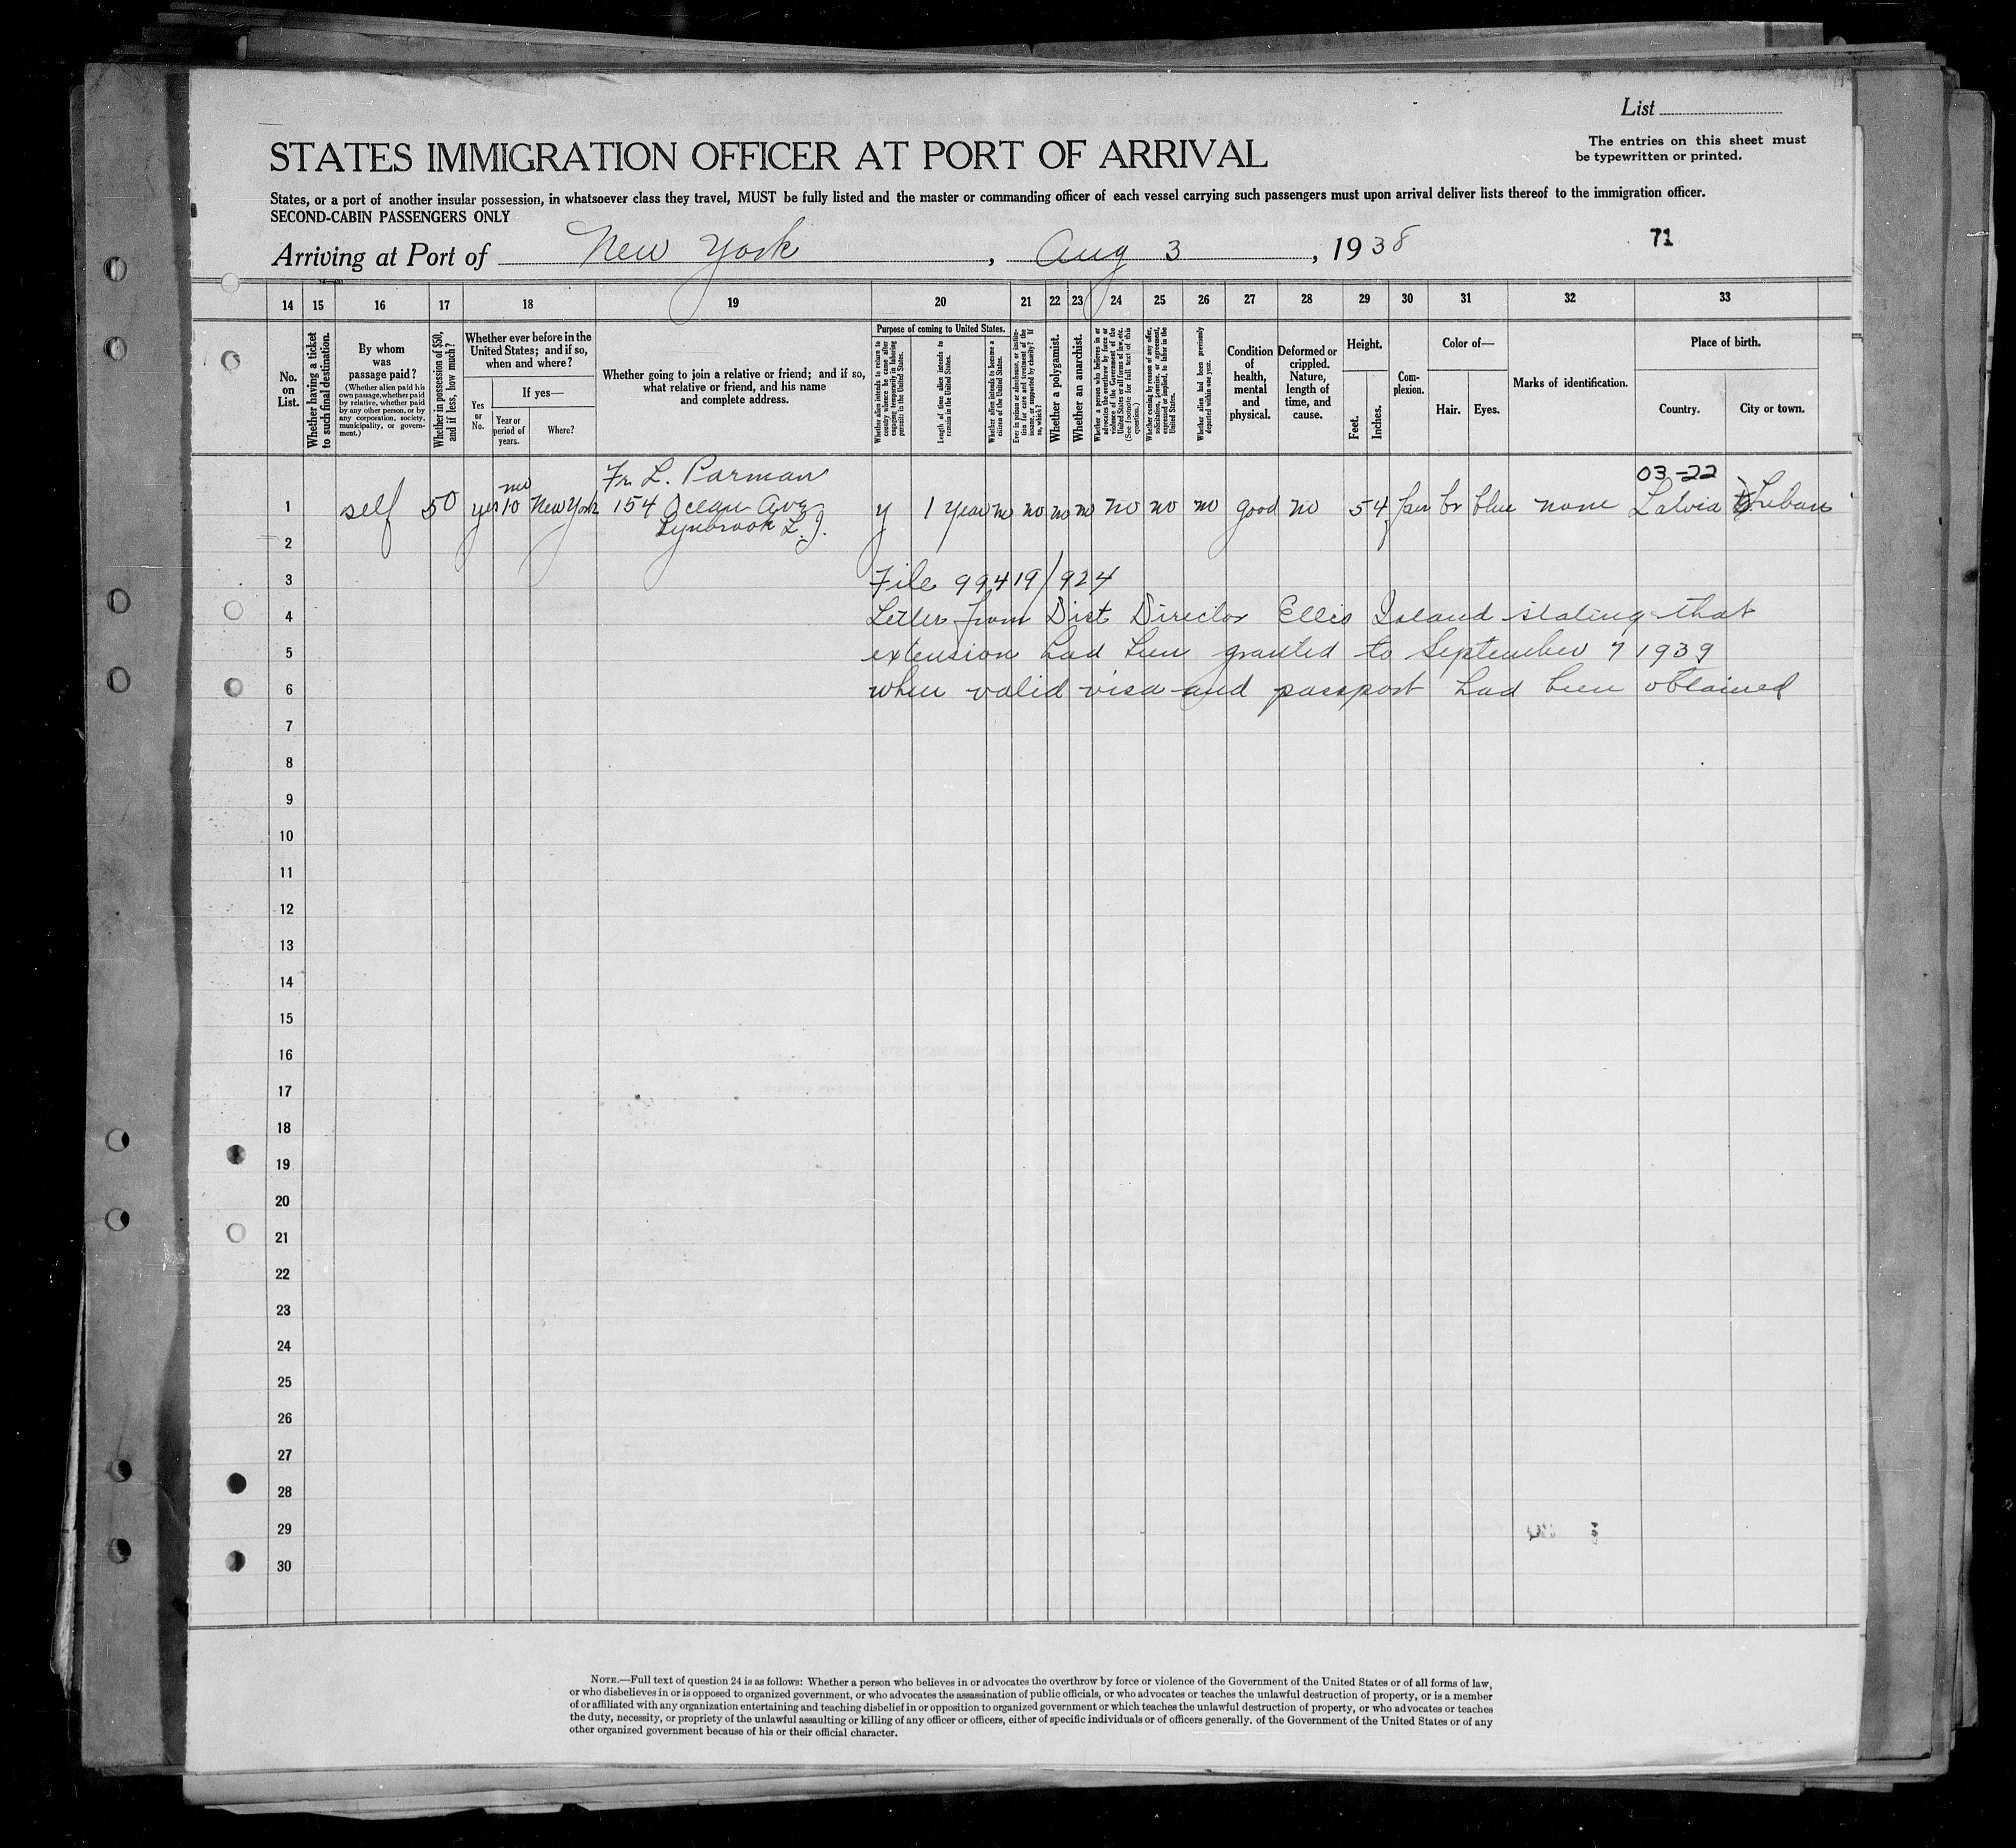 List
The entries on this sheet must
be typewritten or printed.
STATES IMMIGRATION OFFICER AT PORT OF ARRIVAL
States, or a port of another insular possession, in whatsoever class they travel, MUST be fully listed and the master or commanding officer of each vessel carrying such passengers must upon arrival deliver lists thereof to the immigration officer.
SECOND-CABIN PASSENGERS ONLY
Arriving at Port of New York, Aug 3, 1938
71
14 15 16 17 18 19 20 21 22 23 24 25 26 27 28 29 30 31 32 33
No. on List.
Whether having a ticket to such final destination.
By whom was passage paid?
(Whether alien paid his own passage, whether paid by relative, whether paid by any other person, or by any corporation, society, municipality, or government.)
Whether in possession of $50, and if less, how much?
Whether ever before in the United States; and if so, when and where?
Yes or No.
If yes—
Year or period of years.
Where?
Whether going to join a relative or friend; and if so, what relative or friend, and his name and complete address.
Purpose of coming to United States.
Whether alien intends to return to country whence he came after engaging temporarily in laboring pursuits in the United States.
Length of time alien intends to remain in the United States.
Whether alien intends to become a citizen of the United States.
Ever in prison or almshouse, or institution for care and treatment of the insane, or supported by charity? If so, which?
Whether a polygamist.
Whether an anarchist.
Whether a person who believes in or advocates the overthrow by force or violence of the Government of the United States or all forms of law, etc. (See footnote for full text of this question.)
Whether coming by reason of any offer, solicitation, promise, or agreement, expressed or implied, to labor in the United States.
Whether alien had been previously deported within one year.
Condition of health, mental and physical.
Deformed or crippled. Nature, length of time, and cause.
Height.
Feet.
Inches.
Complexion.
Color of—
Hair.
Eyes.
Marks of identification.
Place of birth.
Country.
City or town.
Fr. L. Parman
03-22
1 self 50 yes 10 mo New York 154 Ocean Ave y 1 year no no no no no no no good no 5 4 fair br blue none Latvia
Lynbrook L.I.
2
3 File 99419/924
4 Letter from Dist Director Ellis Island stating that
5 extension had been granted to September 7 1939
6 when valid visa and passport had been obtained
7
8
9
10
11
12
13
14
15
16
17
18
19
20
21
22
23
24
25
26
27
28
29
30
NOTE.—Full text of question 24 is as follows: Whether a person who believes in or advocates the overthrow by force or violence of the Government of the United States or of all forms of law,
or who disbelieves in or is opposed to organized government, or who advocates the assassination of public officials, or who advocates or teaches the unlawful destruction of property, or is a member
of or affiliated with any organization entertaining and teaching disbelief in or opposition to organized government or which teaches the unlawful destruction of property, or who advocates or teaches
the duty, necessity, or propriety of the unlawful assaulting or killing of any officer or officers, either of specific individuals or of officers generally. of the Government of the United States or of any
other organized government because of his or their official character.